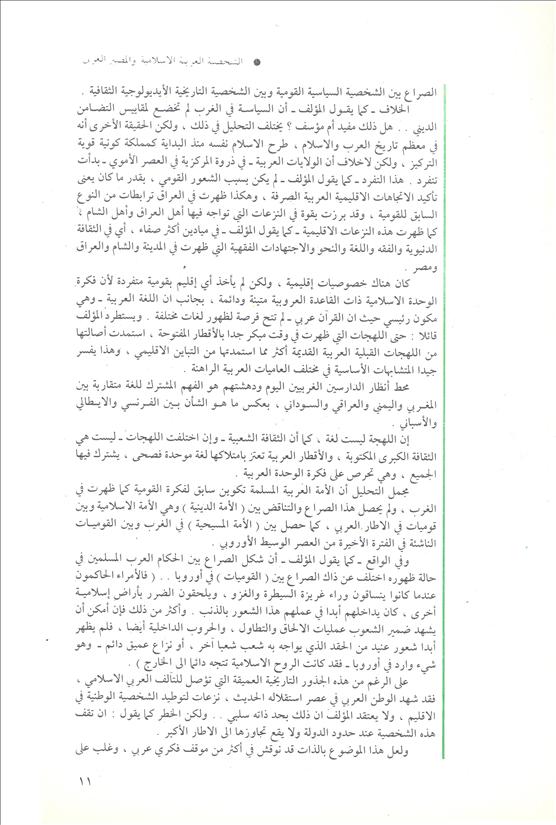 ● الشخصية العربية الاسلامية والمصير العربي
الصراع بين الشخصية السياسية القومية وبين الشخصية التاريخية الأيديولوجية الثقافية .
الخلاف ـ كما يقول المؤلف ـ أن السياسة في الغرب لم تخضع لمقاييس التضامن
الديني . . هل ذلك مفيد أم مؤسف ؟ يختلف التحليل في ذلك ، ولكن الحقيقة الأخرى أنه
في معظم تاريخ العرب والاسلام ، طرح الاسلام نفسه منذ البداية كمملكة كونية قوية
التركيز ، ولكن لاخلاف أن الولايات العربية ـ في ذروة المركزية في العصر الأموي ـ بدأت
تنفرد . هذا التفرد ـ كما يقول المؤلف ـ لم يكن بسبب الشعور القومي ، بقدر ما كان يعنى
تأكيد الاتجاهات الاقليمية العربية الصرفة ، وهكذا ظهرت في العراق ترابطات من النوع
السابق للقومية ، وقد برزت بقوة في النزعات التي تواجه فيها أهل العراق وأهل الشام ،
كما ظهرت هذه النزعات الاقليمية ـ كما يقول المؤلف ـ في ميادين أكثر صفاء ، أي في الثقافة
الدنيوية والفقه واللغة والنحو والاجتهادات الفقهية التي ظهرت في المدينة والشام والعراق
ومصر .
كان هناك خصوصيات إقليمية ، ولكن لم يأخذ أي إقليم بقومية متفردة لأن فكرة
الوحدة الاسلامية ذات القاعدة العروبية متينة ودائمة ، بجانب ان اللغة العربية ـ وهي
مكون رئيسي حيث ان القرآن عربي ـ لم تتح فرصة لظهور لغات مختلفة . ويستطرد المؤلف
قائلا : حتى اللهجات التي ظهرت في وقت مبكر جدا بالأقطار المفتوحة ، استمدت أصالتها
من اللهجات القبلية العربية القديمة أكثر مما استمدتها من التباين الاقليمي ، وهذا يفسر
جيدا المتشابهات الأساسية في مختلف العاميات العربية الراهنة .
محط أنظار الدارسين الغربيين اليوم ودهشتهم هو الفهم المشترك للغة متقاربة بين
المغربي واليمني والعراقي والسوداني ، بعكس ما هو الشأن بين الفرنسي والايطالي
والأسباني .
إن اللهجة ليست لغة ، كما أن الثقافة الشعبية ـ وإن اختلفت اللهجات ـ ليست هي
الثقافة الكبرى المكتوبة ، والأقطار العربية تعتز بامتلاكها لغة موحدة فصحى ، يشترك فيها
الجميع ، وهي تحرص على فكرة الوحدة العربية .
مجمل التحليل أن الأمة العربية المسلمة تكوين سابق لفكرة القومية كما ظهرت في
الغرب ، ولم يحصل هذا الصراع والتناقض بين ( الأمة الدينية ) وهي الأمة الاسلامية وبين
قوميات في الاطار العربي ، كما حصل بين ( الأمة المسيحية ) في الغرب وبين القوميات
الناشئة في الفترة الأخيرة من العصر الوسيط الأوروبي .
وفي الواقع ـ كما يقول المؤلف ـ أن شكل الصراع بين الحكام العرب المسلمين في
حالة ظهوره اختلف عن ذاك الصراع بين ( القوميات ) في أوروبا . . ( فالأمراء الحاكمون
عندما كانوا ينساقون وراء غريزة السيطرة والغزو ، ويلحقون الضرر بأراض إسلامية
أخرى ، كان يداخلهم أبدا في عملهم هذا الشعور بالذنب . وأكثر من ذلك فإن أمكن أن
يشهد ضمير الشعوب عمليات الالحاق والتطاول ، والحروب الداخلية أيضا ، فلم يظهر
أبدا شعور عنيد من الحقد الذي يواجه به شعب شعبا آخر ، أو نزاع عميق دائم ـ وهو
شيء وارد في أوروبا ـ فقد كانت الروح الاسلامية تتجه دائما الى الخارج ) .
على الرغم من هذه الجذور التاريخية العميقة التي تؤصل للتآلف العربي الاسلامي ،
فقد شهد الوطن العربي في عصر استقلاله الحديث ، نزعات لتوطيد الشخصية الوطنية في
الاقليم ، ولا يعتقد المؤلف ان ذلك بحد ذاته سلبي . . ولكن الخطر كما يقول : ان تقف
هذه الشخصية عند حدود الدولة ولا يقع تجاوزها الى الاطار الأكبر .
ولعل هذا الموضوع بالذات قد نوقش في أكثر من موقف فكري عربي ، وغلب على
١١